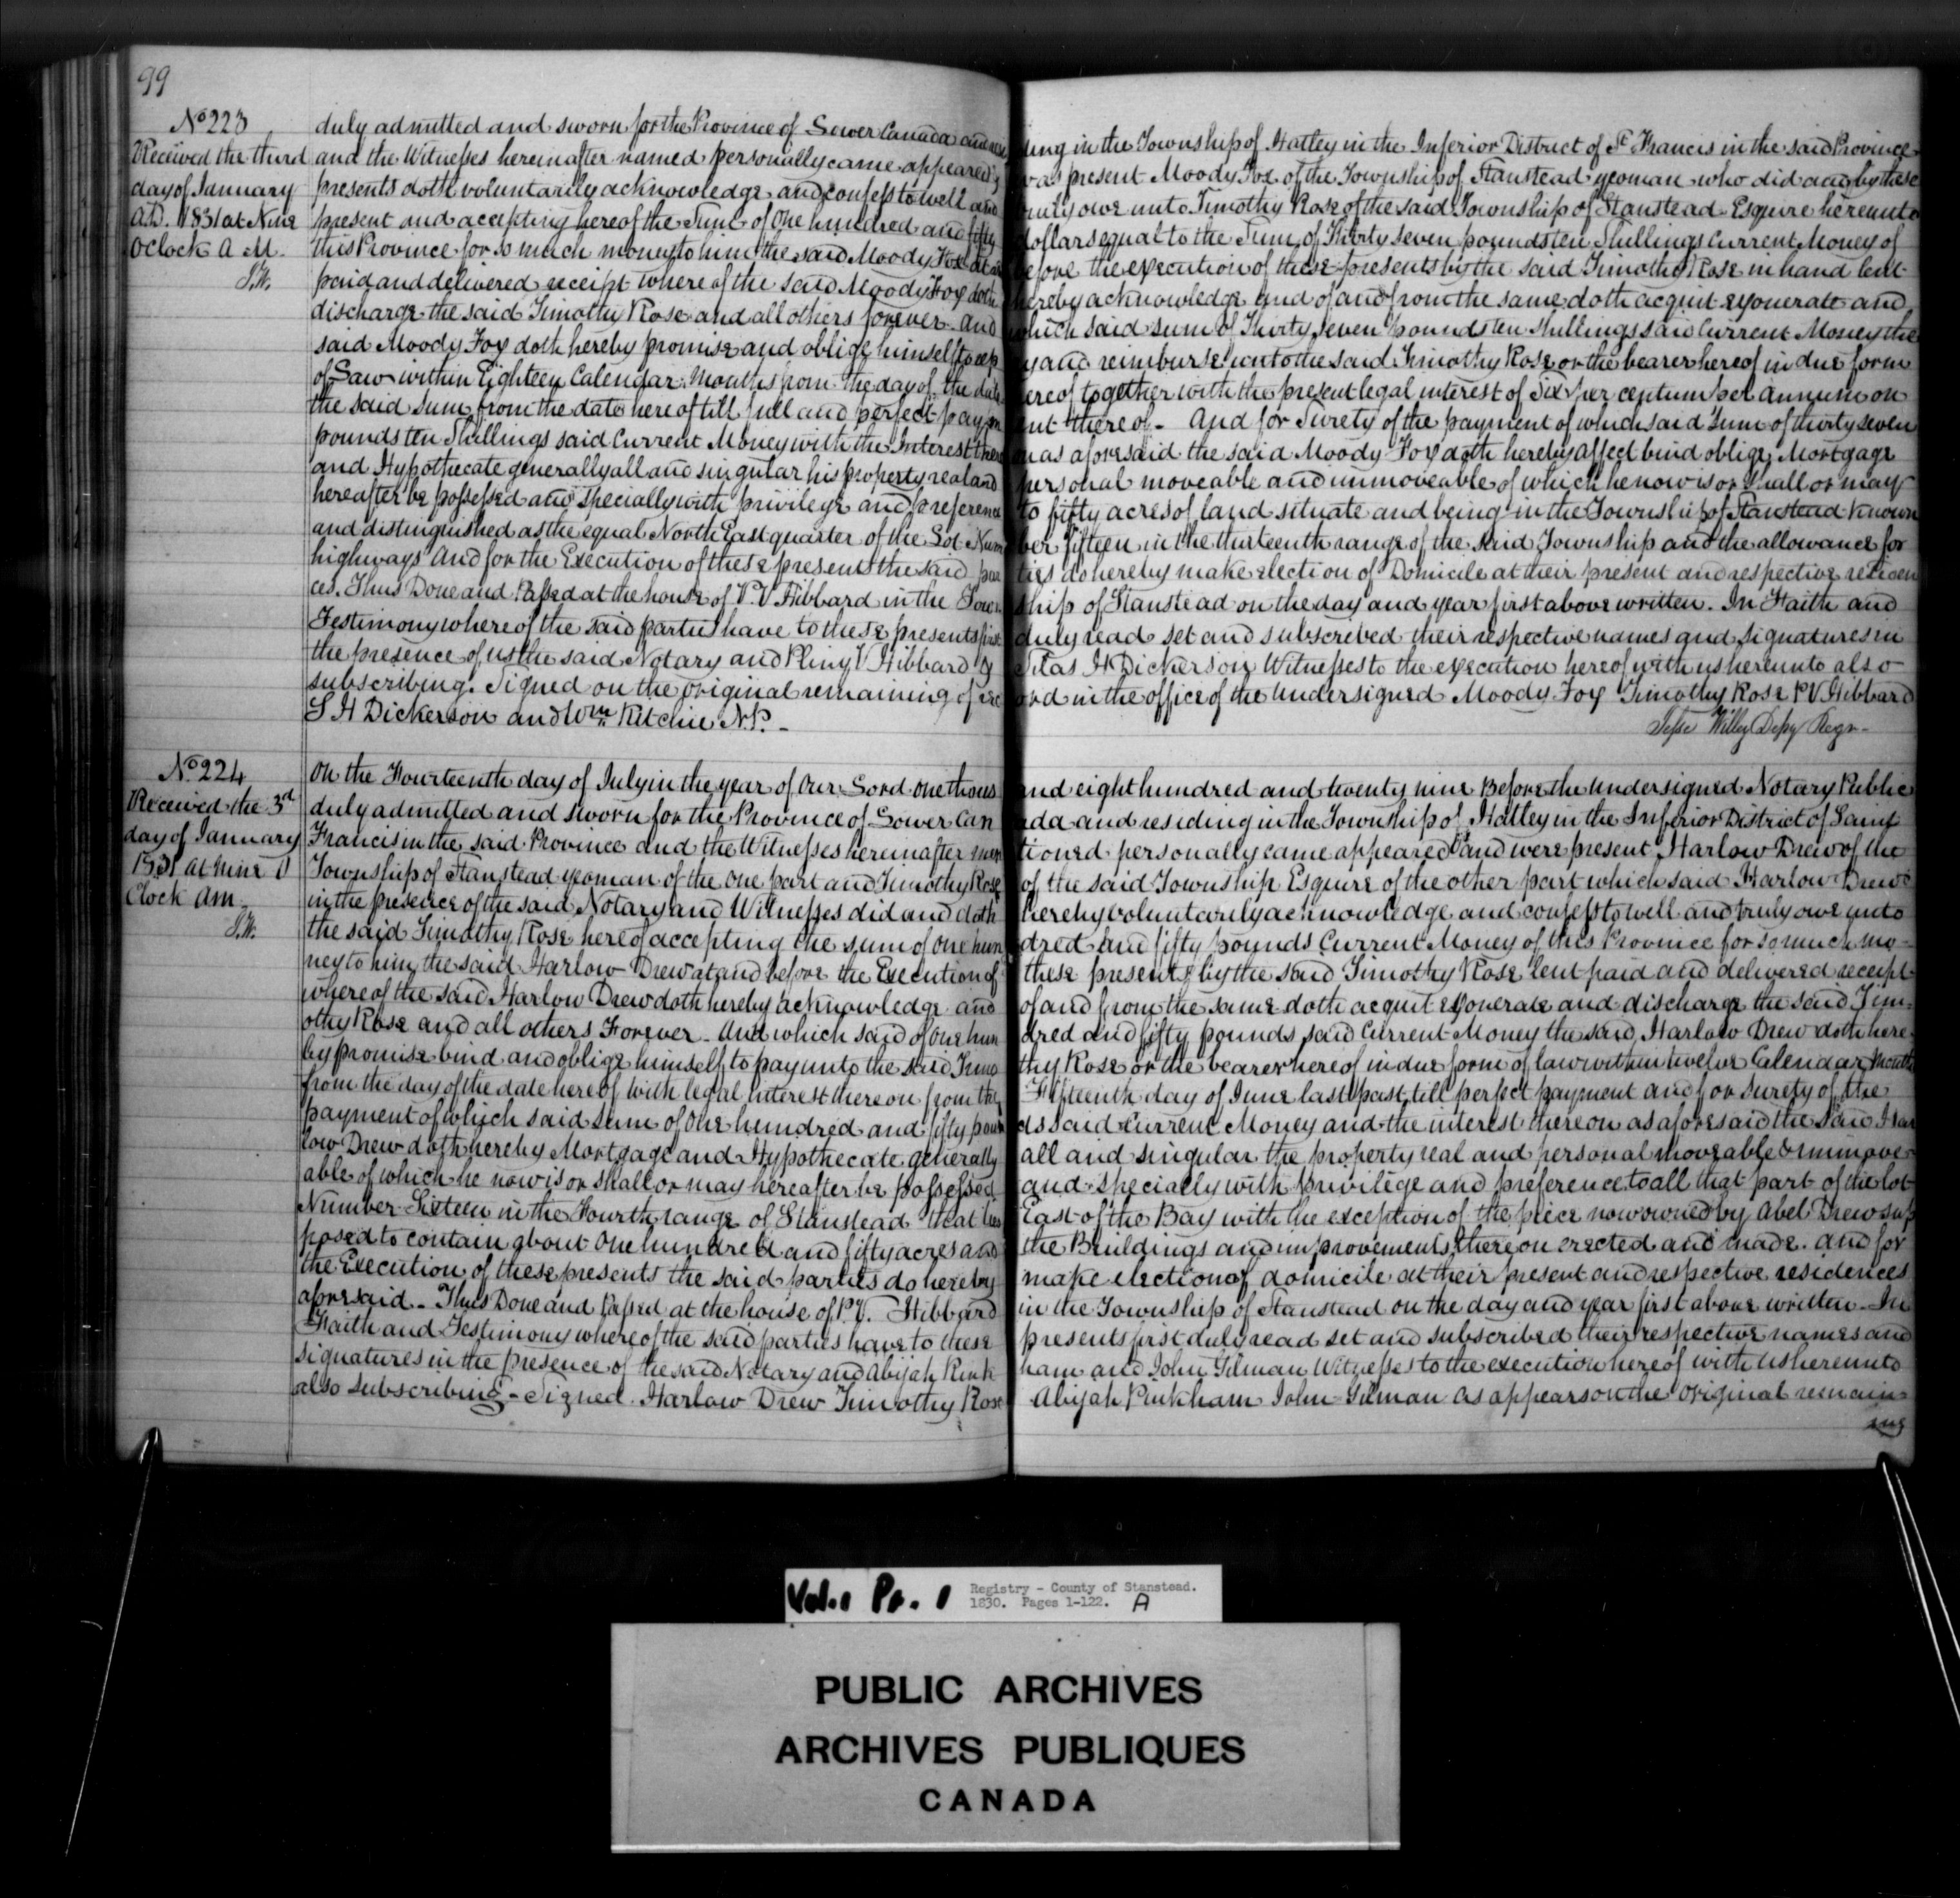 99
No 223
Received the third
day of January
A.D. 1831 at Nine
Oclock A M.
J.W.
duly admitted and sworn for the Province of Lower Canada and resi
ding in the Township of Hatley in the Inferior District of St Francis in the said Province
and the Witnesses hereinafter named personally came appeared &
was present Moody Fox of the Township of Stanstead yeoman who did and by these
presents doth voluntarily acknowledge and confess to well and
truly owe unto Timothy Rose of the said Township of Stanstead Esquire hereunto
present and accepting hereof the Sum of One hundred and fifty
dollars equal to the Sum of Thirty seven pounds ten Shillings Current Money of
this Province for so much money to him the said Moody Fox at &
before the execution of these presents by the said Timothy Rose in hand lent
paid and delivered receipt where of the said Moody Fox doth
hereby acknowledge and of and from the same doth acquit exonerate and
discharge the said Timothy Rose and all others forever. And
which said sum of Thirty seven pounds ten Shillings said Current Money the
said Moody Fox doth hereby promise and oblige himself to rep
ay and reimburse unto the said Timothy Rose or the bearer hereof in due form
of Law within Eighteen Calendar Months from the day of the date
hereof together with the present legal interest of Six per centum per Annum on
the said sum from the date here of till full and perfect paym
ent thereof. And for Surety of the payment of which said Sum of thirty seven
pounds ten Shillings said Current Money with the Interest there
on as aforesaid the said Moody Fox doth hereby affect bind oblige Mortgage
and Hypothecate generally all and singular his property real and
personal moveable and immoveable of which he now is or shall or may
hereafter be possessed and specially with privilege and preference
to fifty acres of land situate and being in the Township of Stanstead Known
and distinguished as the equal North East quarter of the Lot Num
ber fifteen in the thirteenth range of the said Township and the allowance for
highways And for the Execution of these presents the said par
ties do hereby make election of Domicile at their present and respective residen
ces. Thus Done and Passed at the house of P. V Hibbard in the Town
ship of Stanstead on the day and year first above written. In Faith and
Testimony where of the said parties have to these presents first
duly read set and subscribed their respective names and signatures in
the presence of us the said Notary and Pliny V Hibbard &
Silas H Dickerson Witnesses to the execution hereof with us hereunto also
subscribing. Signed on the original remaining of rec
ord in the office of the Undersigned Moody Fox Timothy Rose P V Hibbard
S H Dickerson and Wm Ritchie N.P.
Jesse Willey Depy Regr
No 224
Received the 3rd
day of January
1831 at nine O
Clock Am
J.W.
On the Fourteenth day of July in the year of Our Lord One thous
and eight hundred and twenty nine Before the Undersigned Notary Public
duly admitted and sworn for the Province of Lower Can
ada and residing in the Township of Hatley in the Inferior District of Saint
Francis in the said Province and the Witnesses hereinafter men
tioned personally came appeared and were present Harlow Drew of the
Township of Stanstead yeoman of the One part and Timothy Rose
of the said Township Esquire of the other part which said Harlow Drew
in the presence of the said Notary and Witnesses did and doth
hereby voluntarily acknowledge and confess to well and truly owe unto
the said Timothy Rose here of accepting the sum of One hun
dred and fifty pounds Current Money of this Province for so much mo-
ney to him the said Harlow Drew at and before the Execution of
these presents by the said Timothy Rose lent paid and delivered receipt
where of the said Harlow Drew doth hereby acknowledge and
of and from the same doth acquit exonerate and discharge the said Tim-
othy Rose and all others Forever. And which said of One hun
dred and fifty pounds said Current Money the said Harlow Drew doth here
by promise bind and oblige himself to pay unto the said Timo
thy Rose or the bearer hereof in due form of law within twelve Calendar Months
from the day of the date here of with legal interest there on from the
Fifteenth day of June last past till perfect payment and for surety of the
payment of which said Sum of One hundred and fifty poun
ds said Current Money and the interest thereon as aforesaid the said Har
low Drew doth hereby Mortgage and Hypothecate generally
all and singular the property real and personal moveable & immove-
able of which he now is or shall or may hereafter be possessed
and specially with privilege and preference to all that part of the lot
Number Sixteen in the Fourth range of Stanstead that lies
East of the Bay with the exception of the piece now owned by Abel Drew sup
posed to contain about One hundred and fifty acres and
the Buildings and improvements thereon erected and made. And for
the Execution of these presents the said parties do hereby
make election of domicile at their present and respective residences
aforesaid. Thus Done and Passed at the house of P.V. Hibbard
in the Township of Stanstead on the day and year first above written. In
Faith and Testimony where of the said parties have to these
presents first duly read set and subscribed their respective names and
signatures in the presence of the said Notary and Abijah Pink
ham and John Gilman Witnesses to the execution hereof with us hereunto
also subscribing - Signed. Harlow Drew Timothy Rose
Abijah Pinkham John Gilman as appears on the original remain-
ing
Vol.1 Pt. 1
Registry - County of Stanstead.
1830. Pages 1-122. A
PUBLIC ARCHIVES
ARCHIVES PUBLIQUES
CANADA